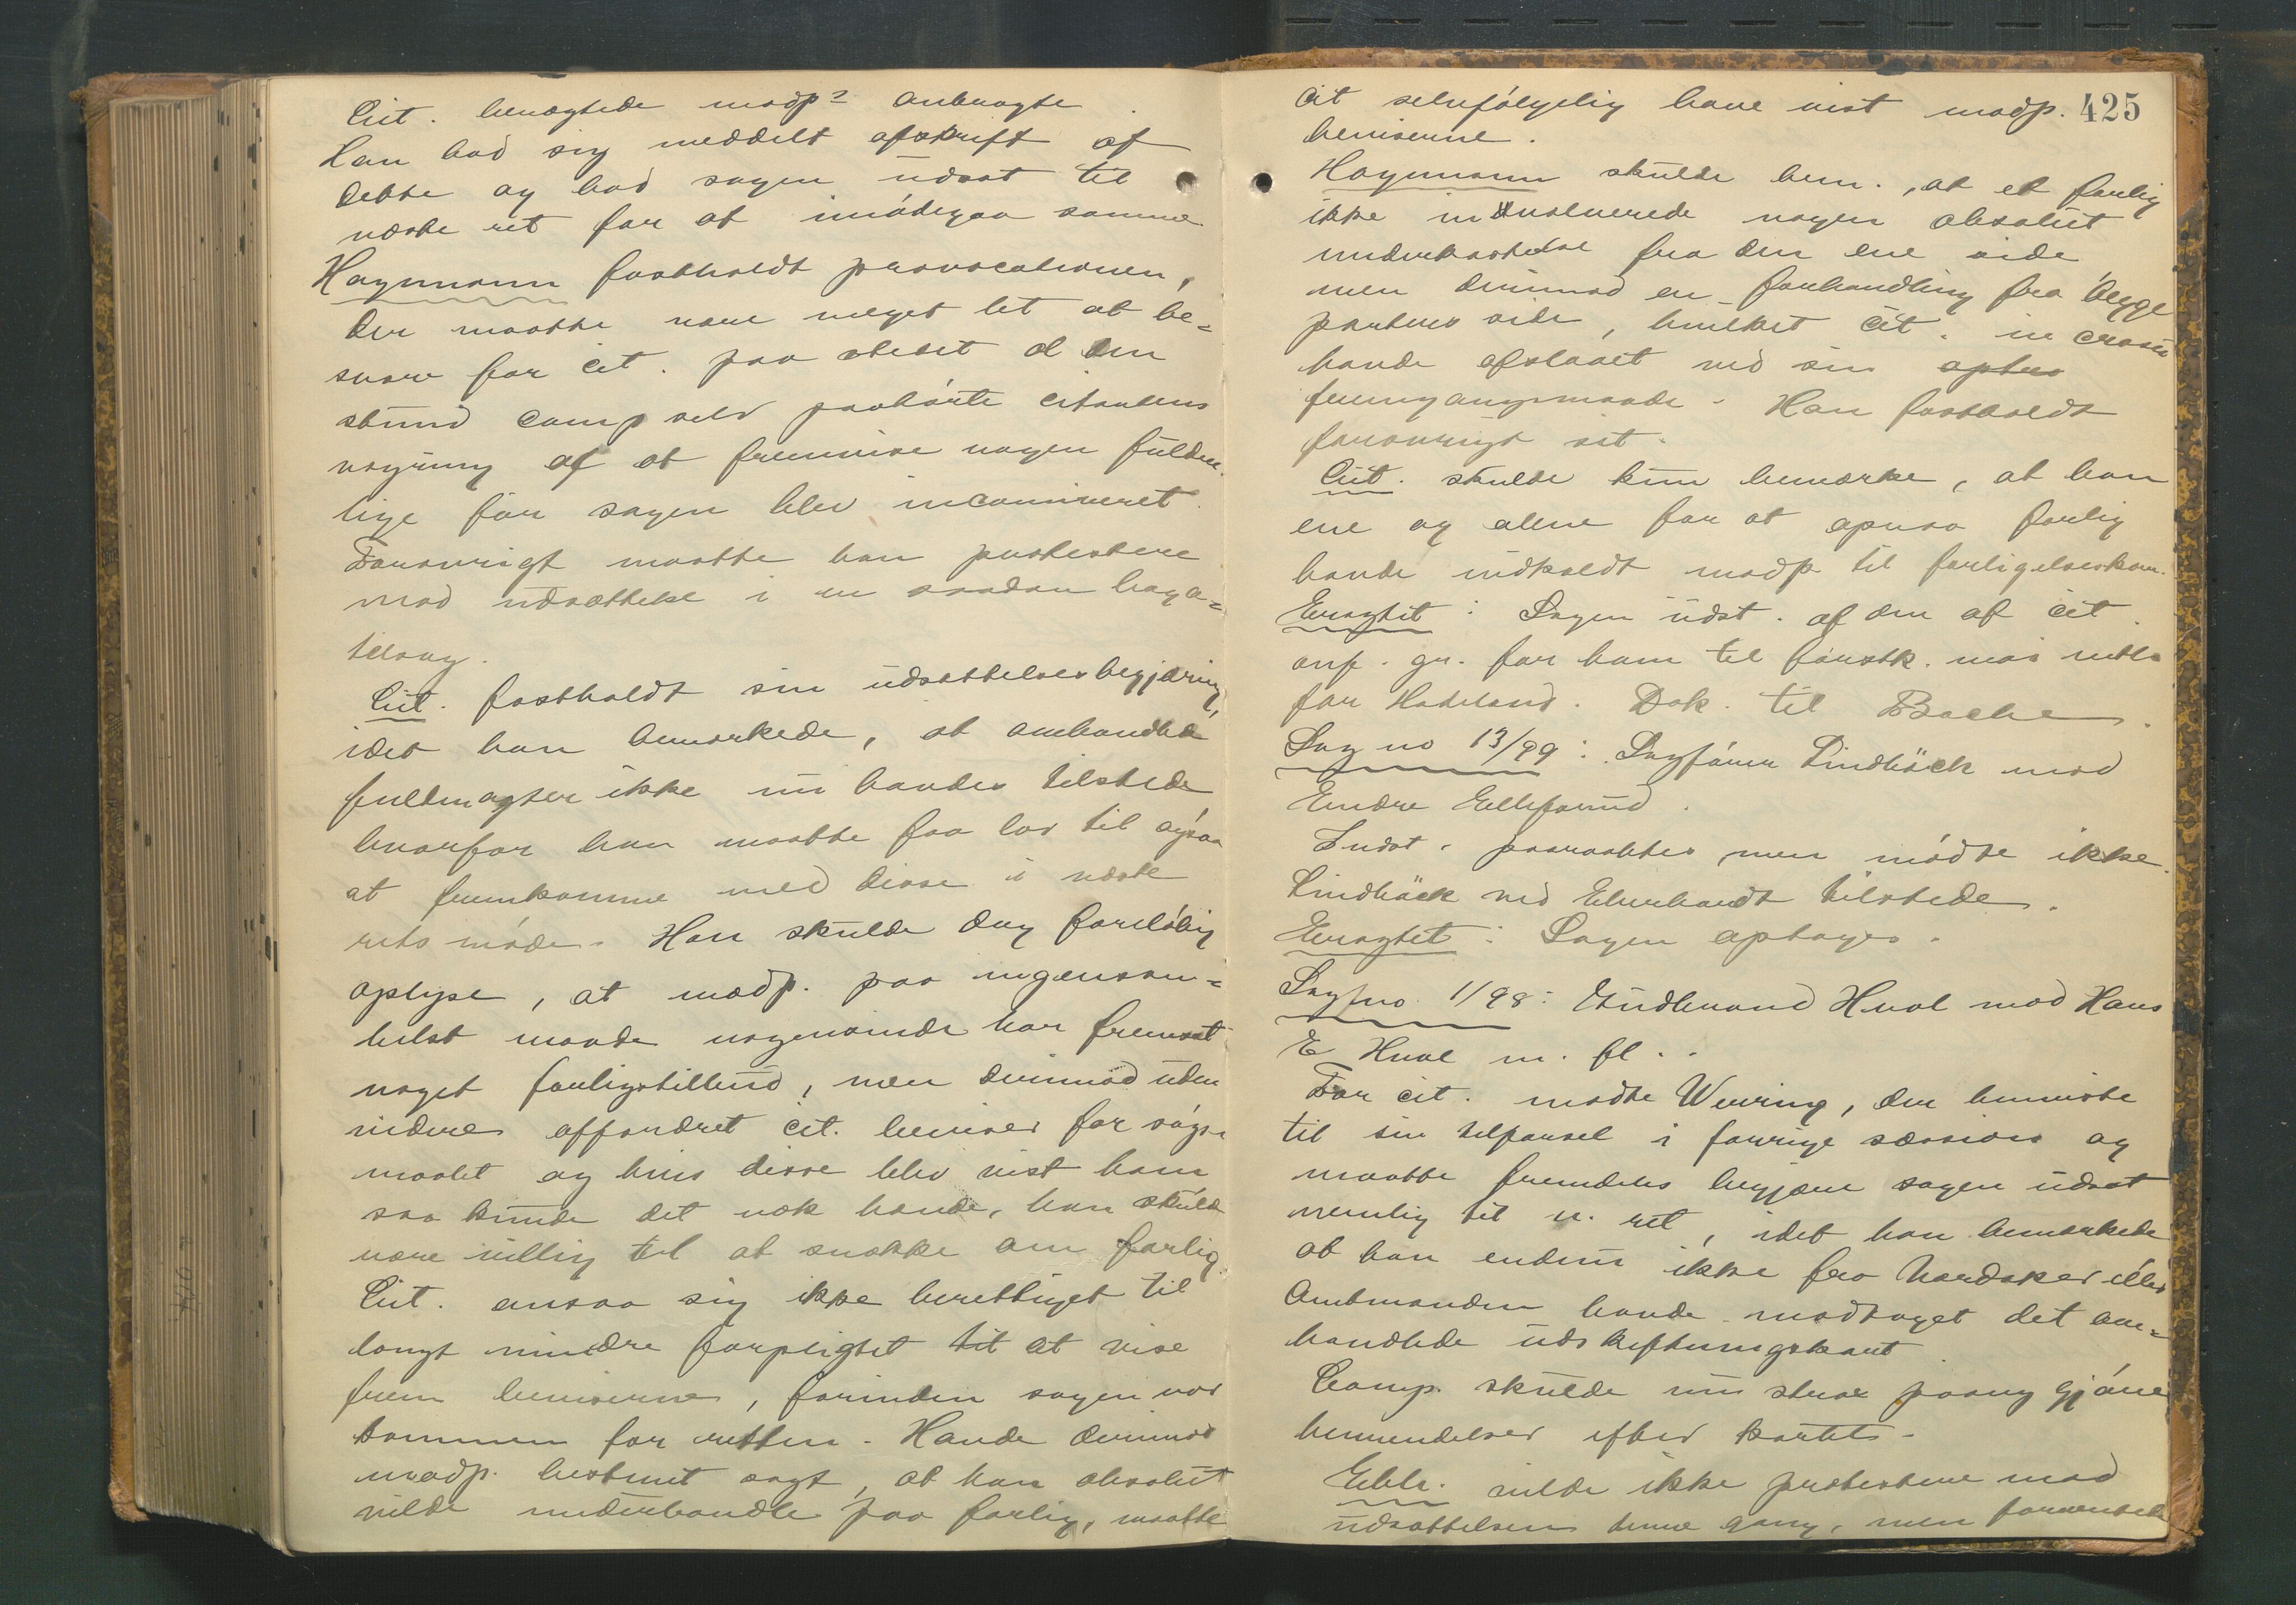 Cit. benægtede modp² anbragte.
Han bad sig meddelt afskrift af
dette og bad sagen udsat til
næste ret for at imødegaa samme
Hagemann fastholdt provocationen,
der maatte være meget let at be=
svare for cit. paa stedet al den
stund comp selv paahørte citantens
vægring af at fremvise nogen fuldm.
lige før sagen blev incamineret.
Forøvrigt maatte han protestere
mod udsættelse i en saadan baga=
telsag.
Cit. fastholdt sin udsættelsesbegjæring,
idet han bemærkede, at omhandlede
fuldmagter ikke nu havdes tilstede
hvorfor han maatte faa lov til ogsaa
at fremkomme med disse i næste
rets møde. Han skulde dog foreløbig
oplyse, at modp. paa ingensom=
helst maade nogensinde har fremsat
noget forligstilbud, men derimod uden
videre affordret cit. beviser for søgs-
maalet og hvis disse blev vist ham
saa kunde det nok hænde, han skulde
være villig til at snakke om forlig.
Cit. ansaa sig ikke berettiget til
langt mindre forpligtet til at vise
frem beviserne, forinden sagen var
kommen for retten. Havde derimod
modp. bestemt sagt, at han absolut
vilde underhandle paa forlig, maatte
425
cit selvfølgelig have vist modp.
beviserne.
Hagemann skulde bem., at et forlig
ikke involverede nogen absolut
underkastelse fra den ene side
men derimod en forhandling fra begge
parters side, hvilket cit. in casu
havde afslaaet ved sin optræ
fremgangsmaade. Han fastholdt
forøvrigt sit.
Cit. skulde kun bemærke, at han
ene og alene for at opnaa forlig
havde indkaldt modp til forligelseskom.
Eragtet: Sagen udst. af den af cit.
anf. gr. for ham til førstk. maa rette
for Hadeland. Dok. til Bache.
Sag no 13/99: Sagfører Lindbäck mod
Endre Ellefsrud.
Indst. paaraabtes men mødte ikke.
Lindbäck ved Eberhardt tilstede.
Eragtet: Sagen optages.
Sag no. 1/98: Gudbrand Hval mod Hans
E Hval m. fl..
For cit. mødte Wenring, der henviste
til sin tilførsel i forrige session og
maatte fremdeles begjære sagen udsat
nemlig til n. ret, idet han bemærkede
at han endnu ikke fra Hardaker eller
Amtmanden havde modtaget det om=
handlede udskiftningskart.
Comp. skulde nu strax paany gjøre
henvendelser efter kartet.
Ebh. vilde ikke protestere mod
udsættelsen denne gang, men forventede